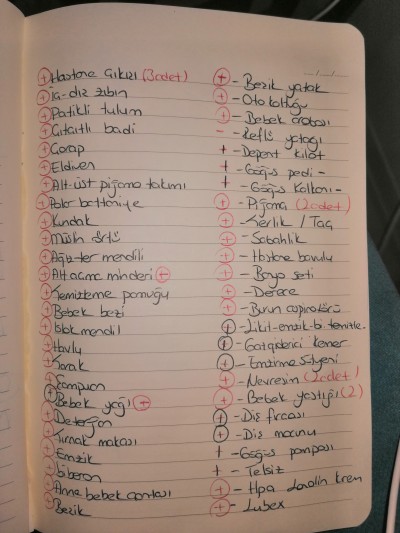 + Hastane Çıkışı (3 adet)
+ iç-dız zıbın
+ Patikli tulum
+ Çıtçıtlı badi
+ Çorap
+ Eldiven
+ Alt-üst pijama takımı
+ Polar battaniye
+ Kundak
+ Müslin örtü
+ Ağız-ter mendili
+ Alt açma minderi +
+ Temizleme pamuğu
+ Bebek bezi
+ Islak mendil
+ Havlu
+ Tarak
+ Şampuan
+ Bebek yağı +
+ Deterjan
+ Tırnak makası
+ Emzik
+ biberon
+ Anne bebek çantası
+ Beşik
+ - Beşik yatak
+ - Oto koltuğu
+ - Bebek arabası
- - Reflü yatağı
+ - Depent kilot
+ - Göğüs pedi -
+ - Göğüs kalkanı -
+ - Pijama (2 adet)
+ - Terlik / Taç
+ - Sabahlık
+ - Hastane bavulu
+ - Banyo seti
+ - Derece
+ - Burun aspiratörü
+ - Likit-emzik-bi temizle.
+ - Gaz giderici kemer
+ - Emzirme Sütyeni
+ - Nevresim (2 adet)
+ - Bebek yastığı (2)
+ - Diş fırcası
+ - Diş macunu
+ - Göğüs pompası
+ - Telsiz
+ - Hpa Lanolin krem
+ - Lubex